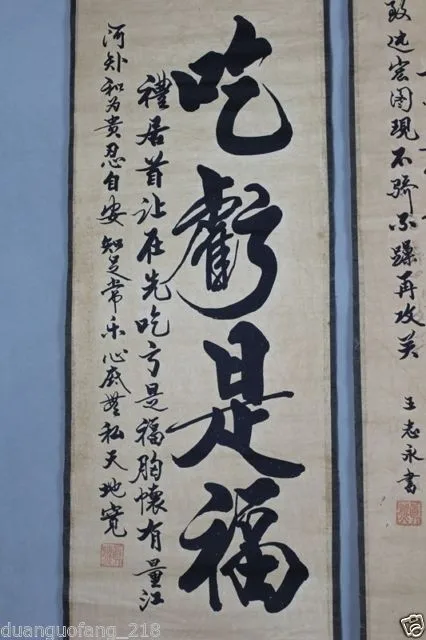 致远宏图現不骄不躁再攻关
王志永書
吃虧是福
禮居首让在先吃亏是福胸懷有量江
河和为貴忍自安知足常乐心底無私天地宽
duanguofang_218